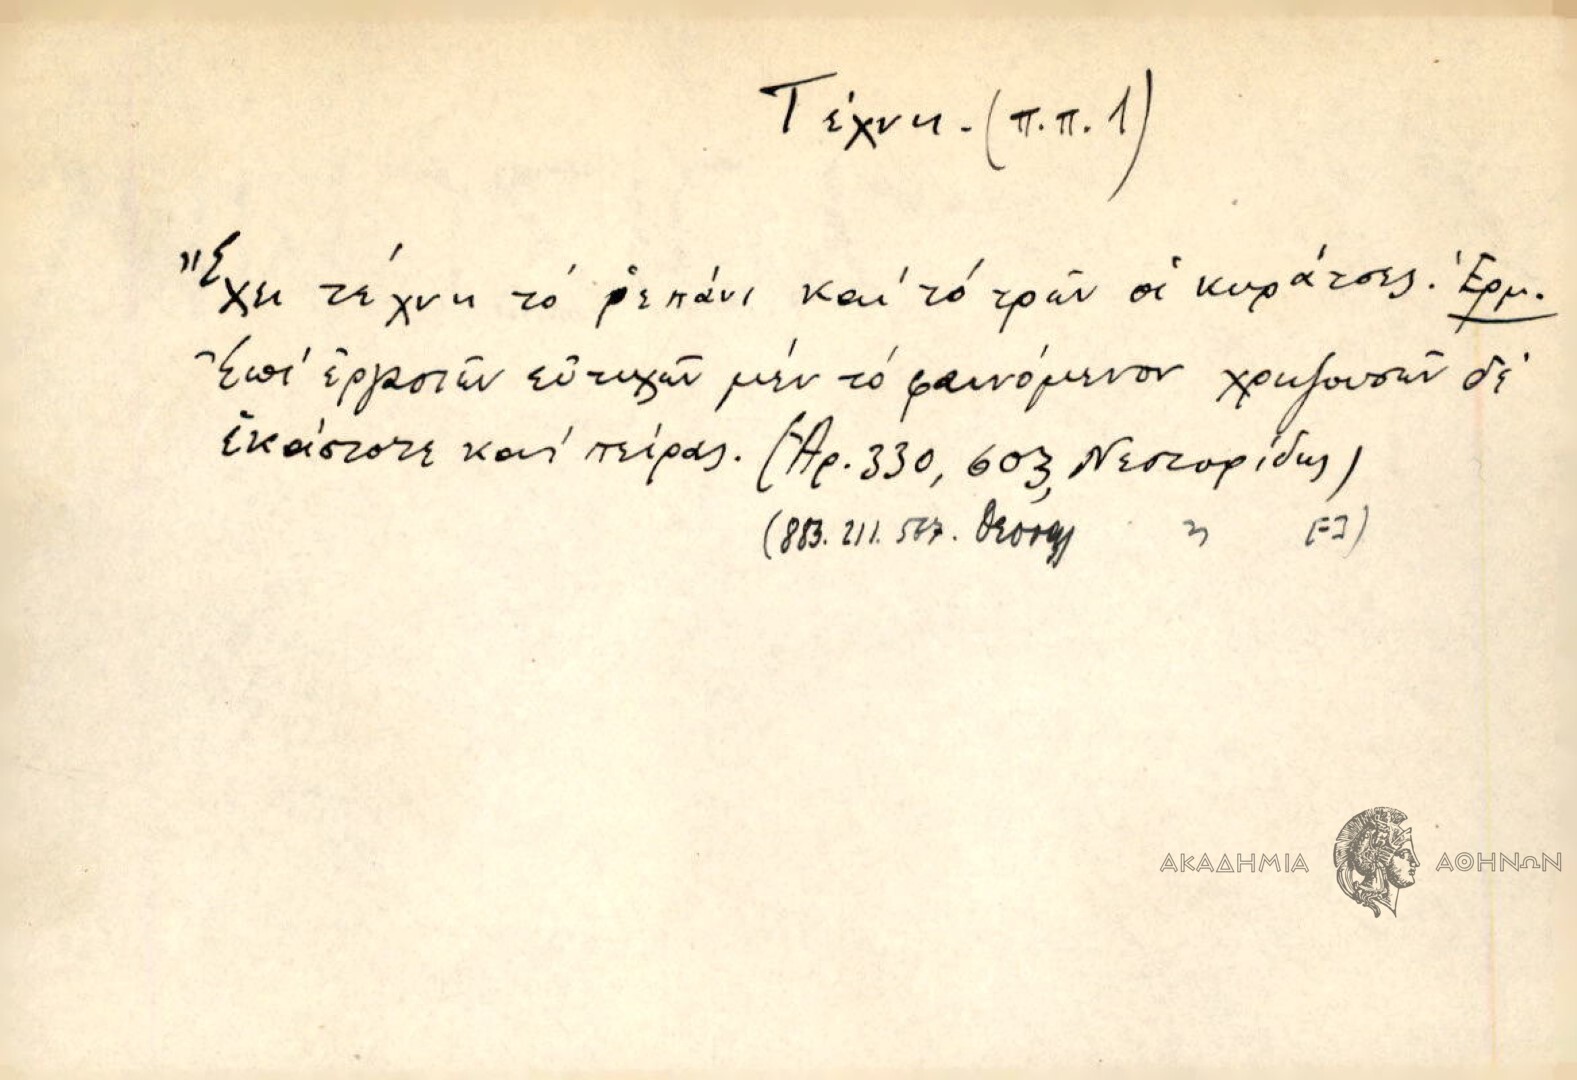 Τέχνη. (π.π. 1)
Ἔχει τέχνη τό ρεπάνι καί τό τρῶν οἱ κυράτσες. Ἑρμ.
Ἐπί ἐργασιῶν εὐτυχῶν μέν τό φαινόμενον χρηζουσῶν δέ
ἑκάστοτε καί πείρας. (Ἀρ. 330, 603, Νεστορίδης)
(883. 211.
ΑΚΑΔΗΜΙΑ ΑΘΗΝΩΝ